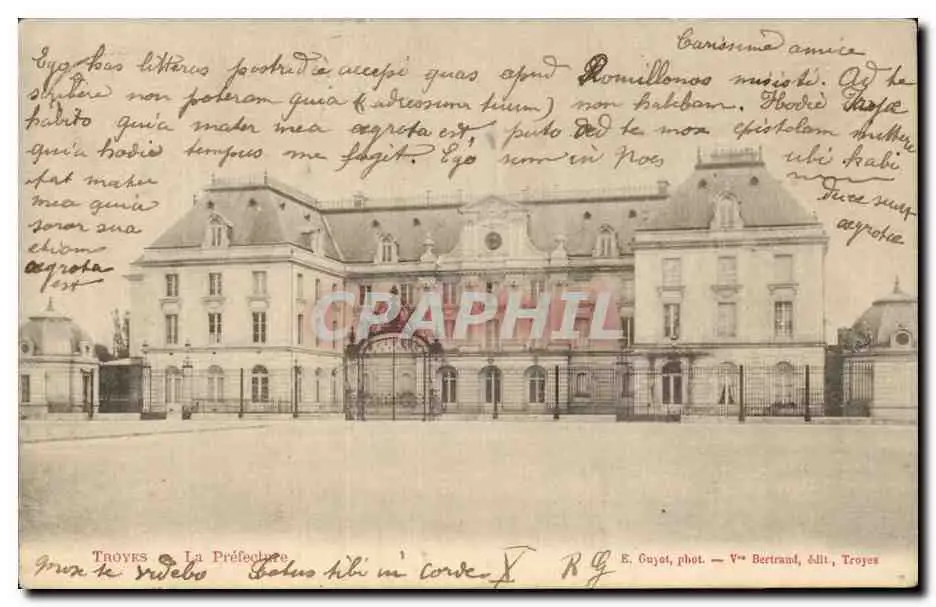 Carissime amice
Ego has litteras postridie accepi quas apud Romillonos misisti. Ad te
scribere non poteram quia (adressum tuum) non habebam. Hodie
habito quia mater mea aegrota est puto sed te mox epistolam mittere
quia hodie tempus me fugit. Ego sum in ubi habi
tat mater
mea quia
soror sua
etiam
aegrota
est
aegrota
CPARAMA
CAPHIL
TROYES La Préfecture
E. Guyot, phot. — Vve Bertrand, édit., Troyes
mox te videbo Laetus tibi in corde X RG